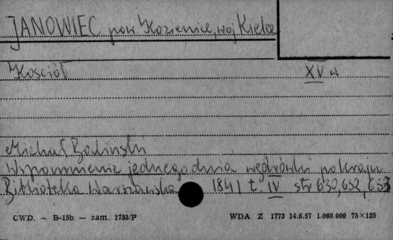 JANOWIEC pow. Kozienice, woj Kielce
Kościół XV w
Michał Baliński
Wspomnienie jednego dnia wędrówki po kraju
Biblioteka Warszawska 1841 t. IV str 630, 632, 633
CWD. - B-15b - zam. 1783/P WDA Z 1773 14.6.57 1.000.000 75×125